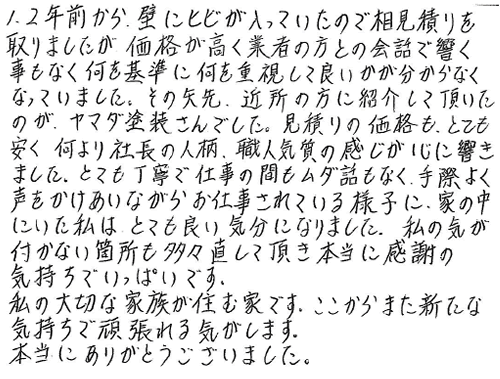 1、2年前から、壁にヒビが入っていたので相見積りを
取りましたが、価格が高く業者の方との会話で響く
事もなく何を基準に何を重視して良いかが分からなく
なっていました。その矢先、近所の方に紹介して頂いた
のが、ヤマダ塗装さんでした。見積りの価格も、とても
安く何より社長の人柄、職人気質の感じが心に響き
ました。とても丁寧で仕事の間もムダ話もなく、手際よく
声をかけあいながらお仕事されている様子に、家の中
にいた私は、とても良い気分になりました。私の気が
付かない箇所も多々直して頂き本当に感謝の
気持ちでいっぱいです。
私の大切な家族が住む家です。ここからまた新たな
気持ちで頑張れる気がします。
本当にありがとうございました。